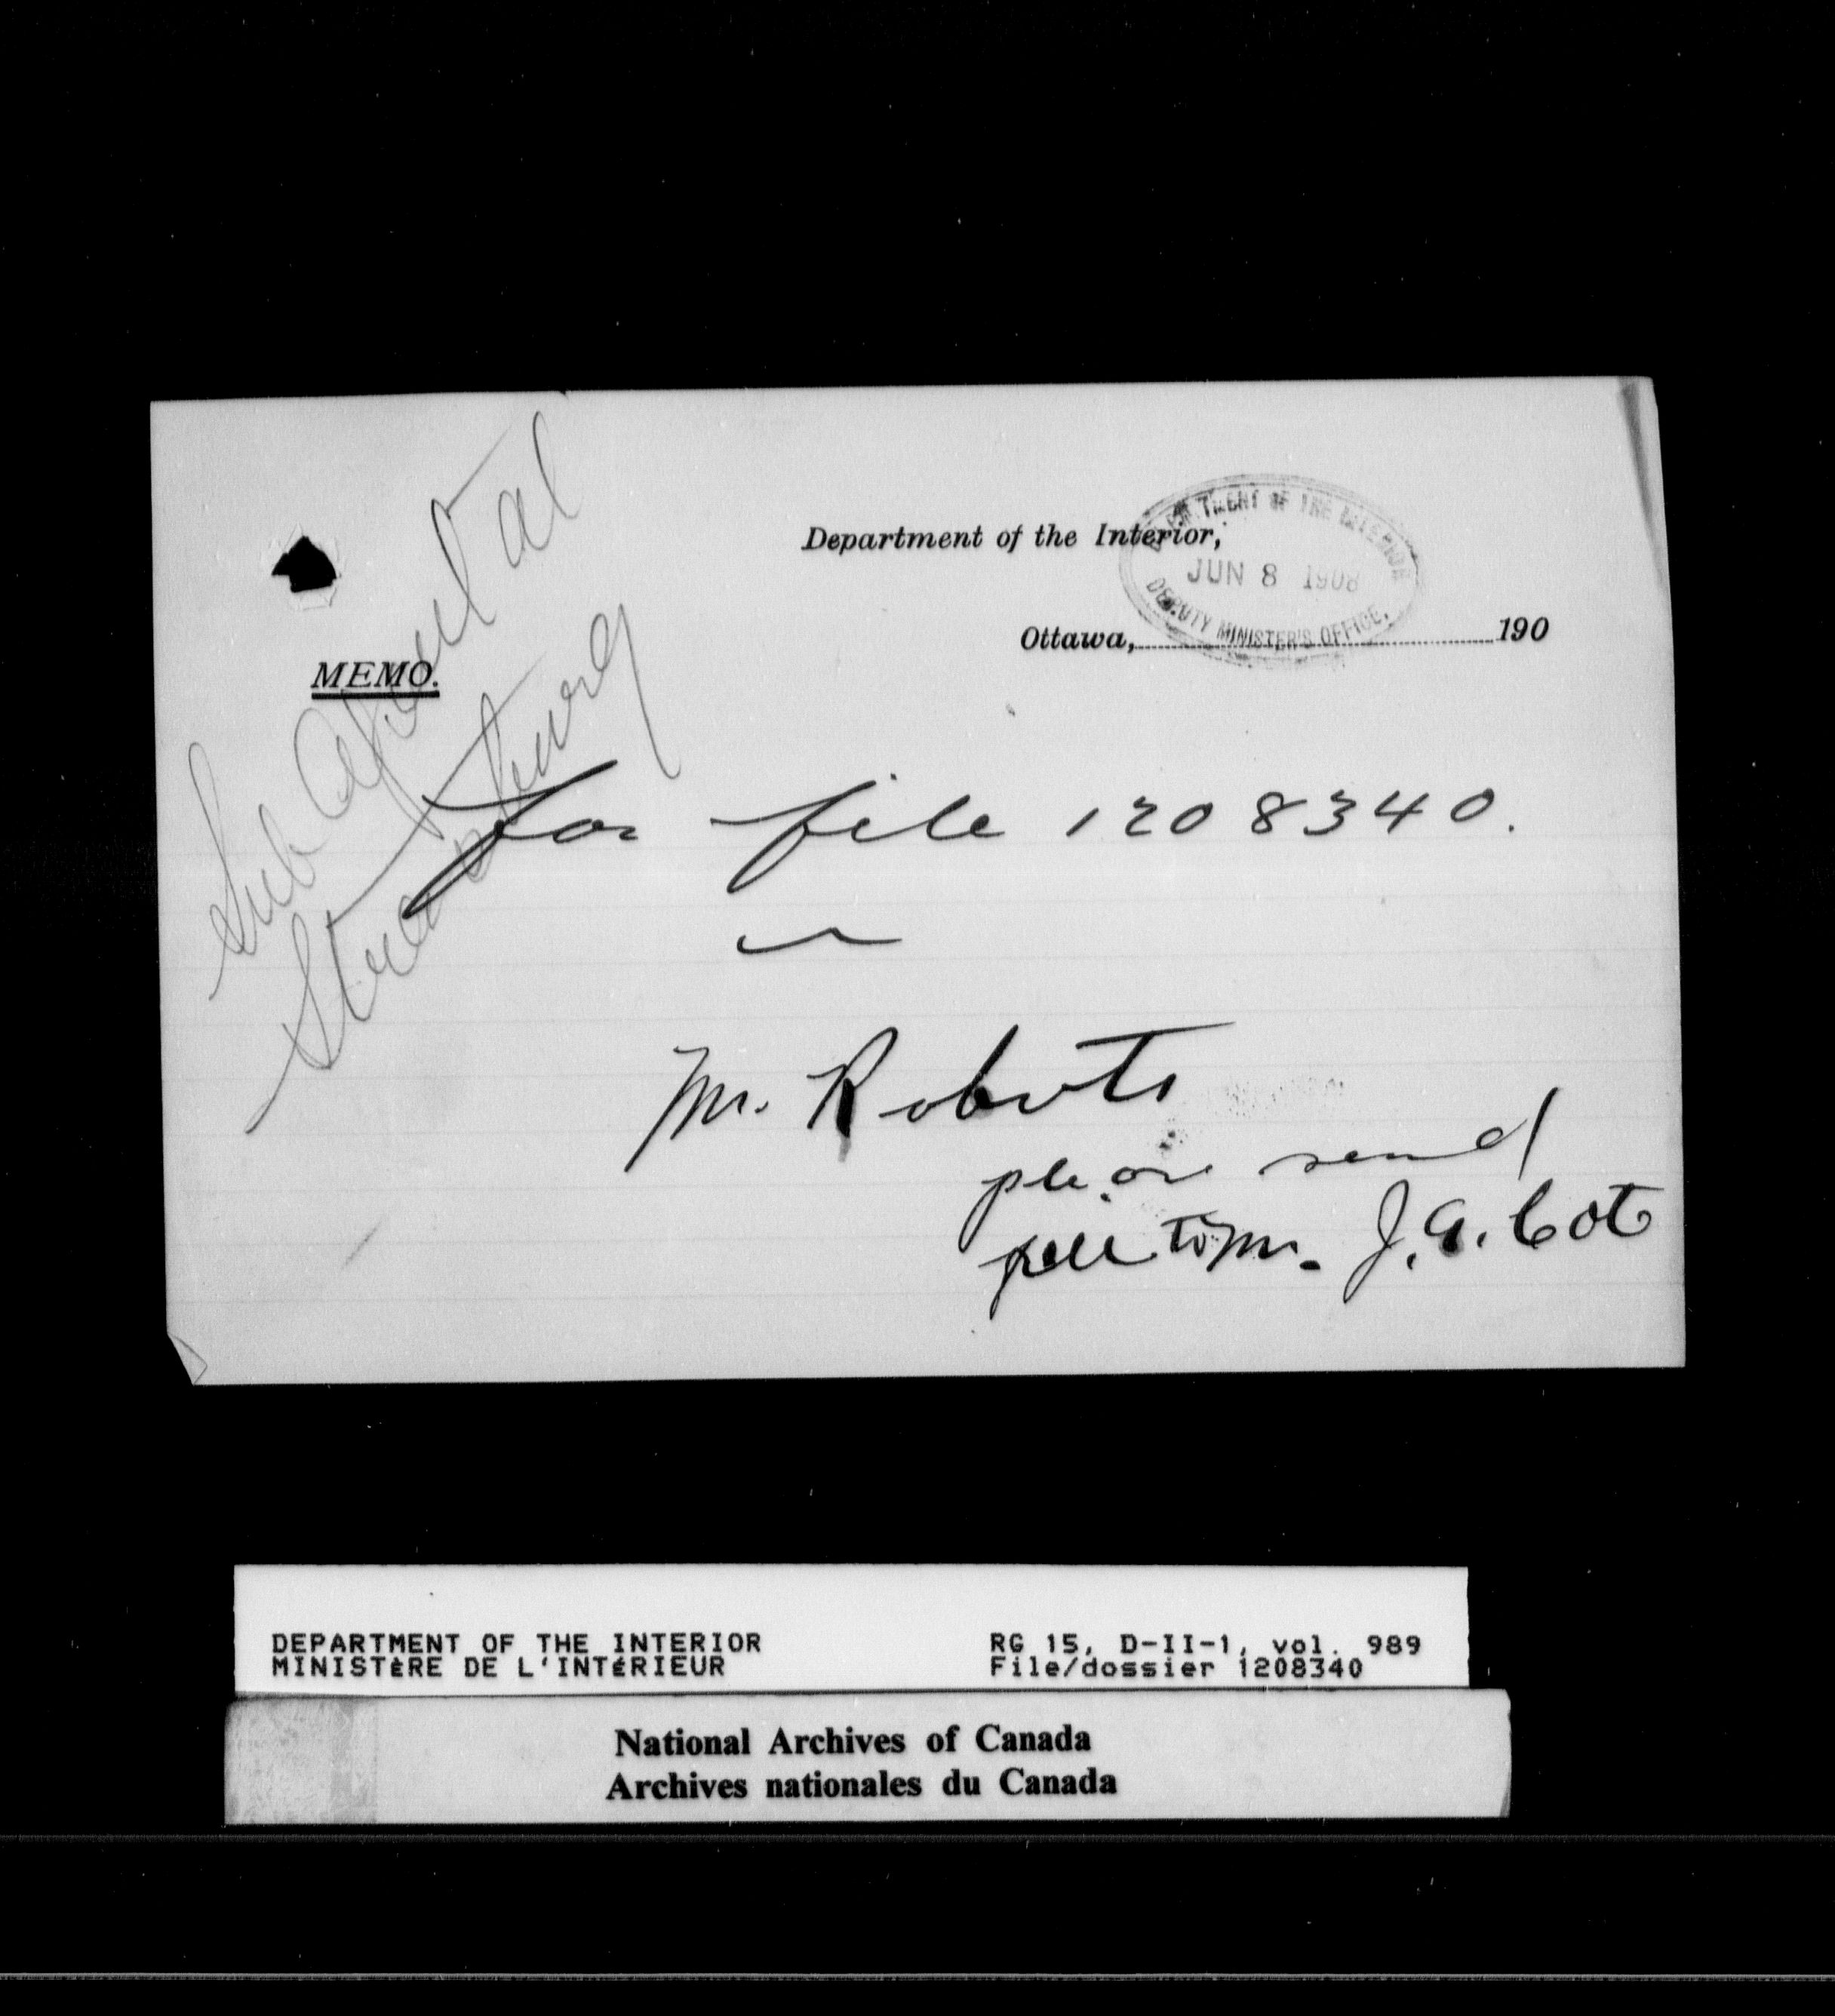 Department of the Interior,
DEPARTMENT OF THE INTERIOR
JUN 8 1908
DEPUTY MINISTER'S OFFICE.
Ottawa, 190
MEMO.
Sub Agent at
for file 1208340.
Mr. Roberts
please send
file to Mr. J. A. Cote
DEPARTMENT OF THE INTERIOR
MINISTÈRE DE L'INTÉRIEUR
RG 15, D-II-1, vol. 989
File/dossier 1208340
National Archives of Canada
Archives nationales du Canada